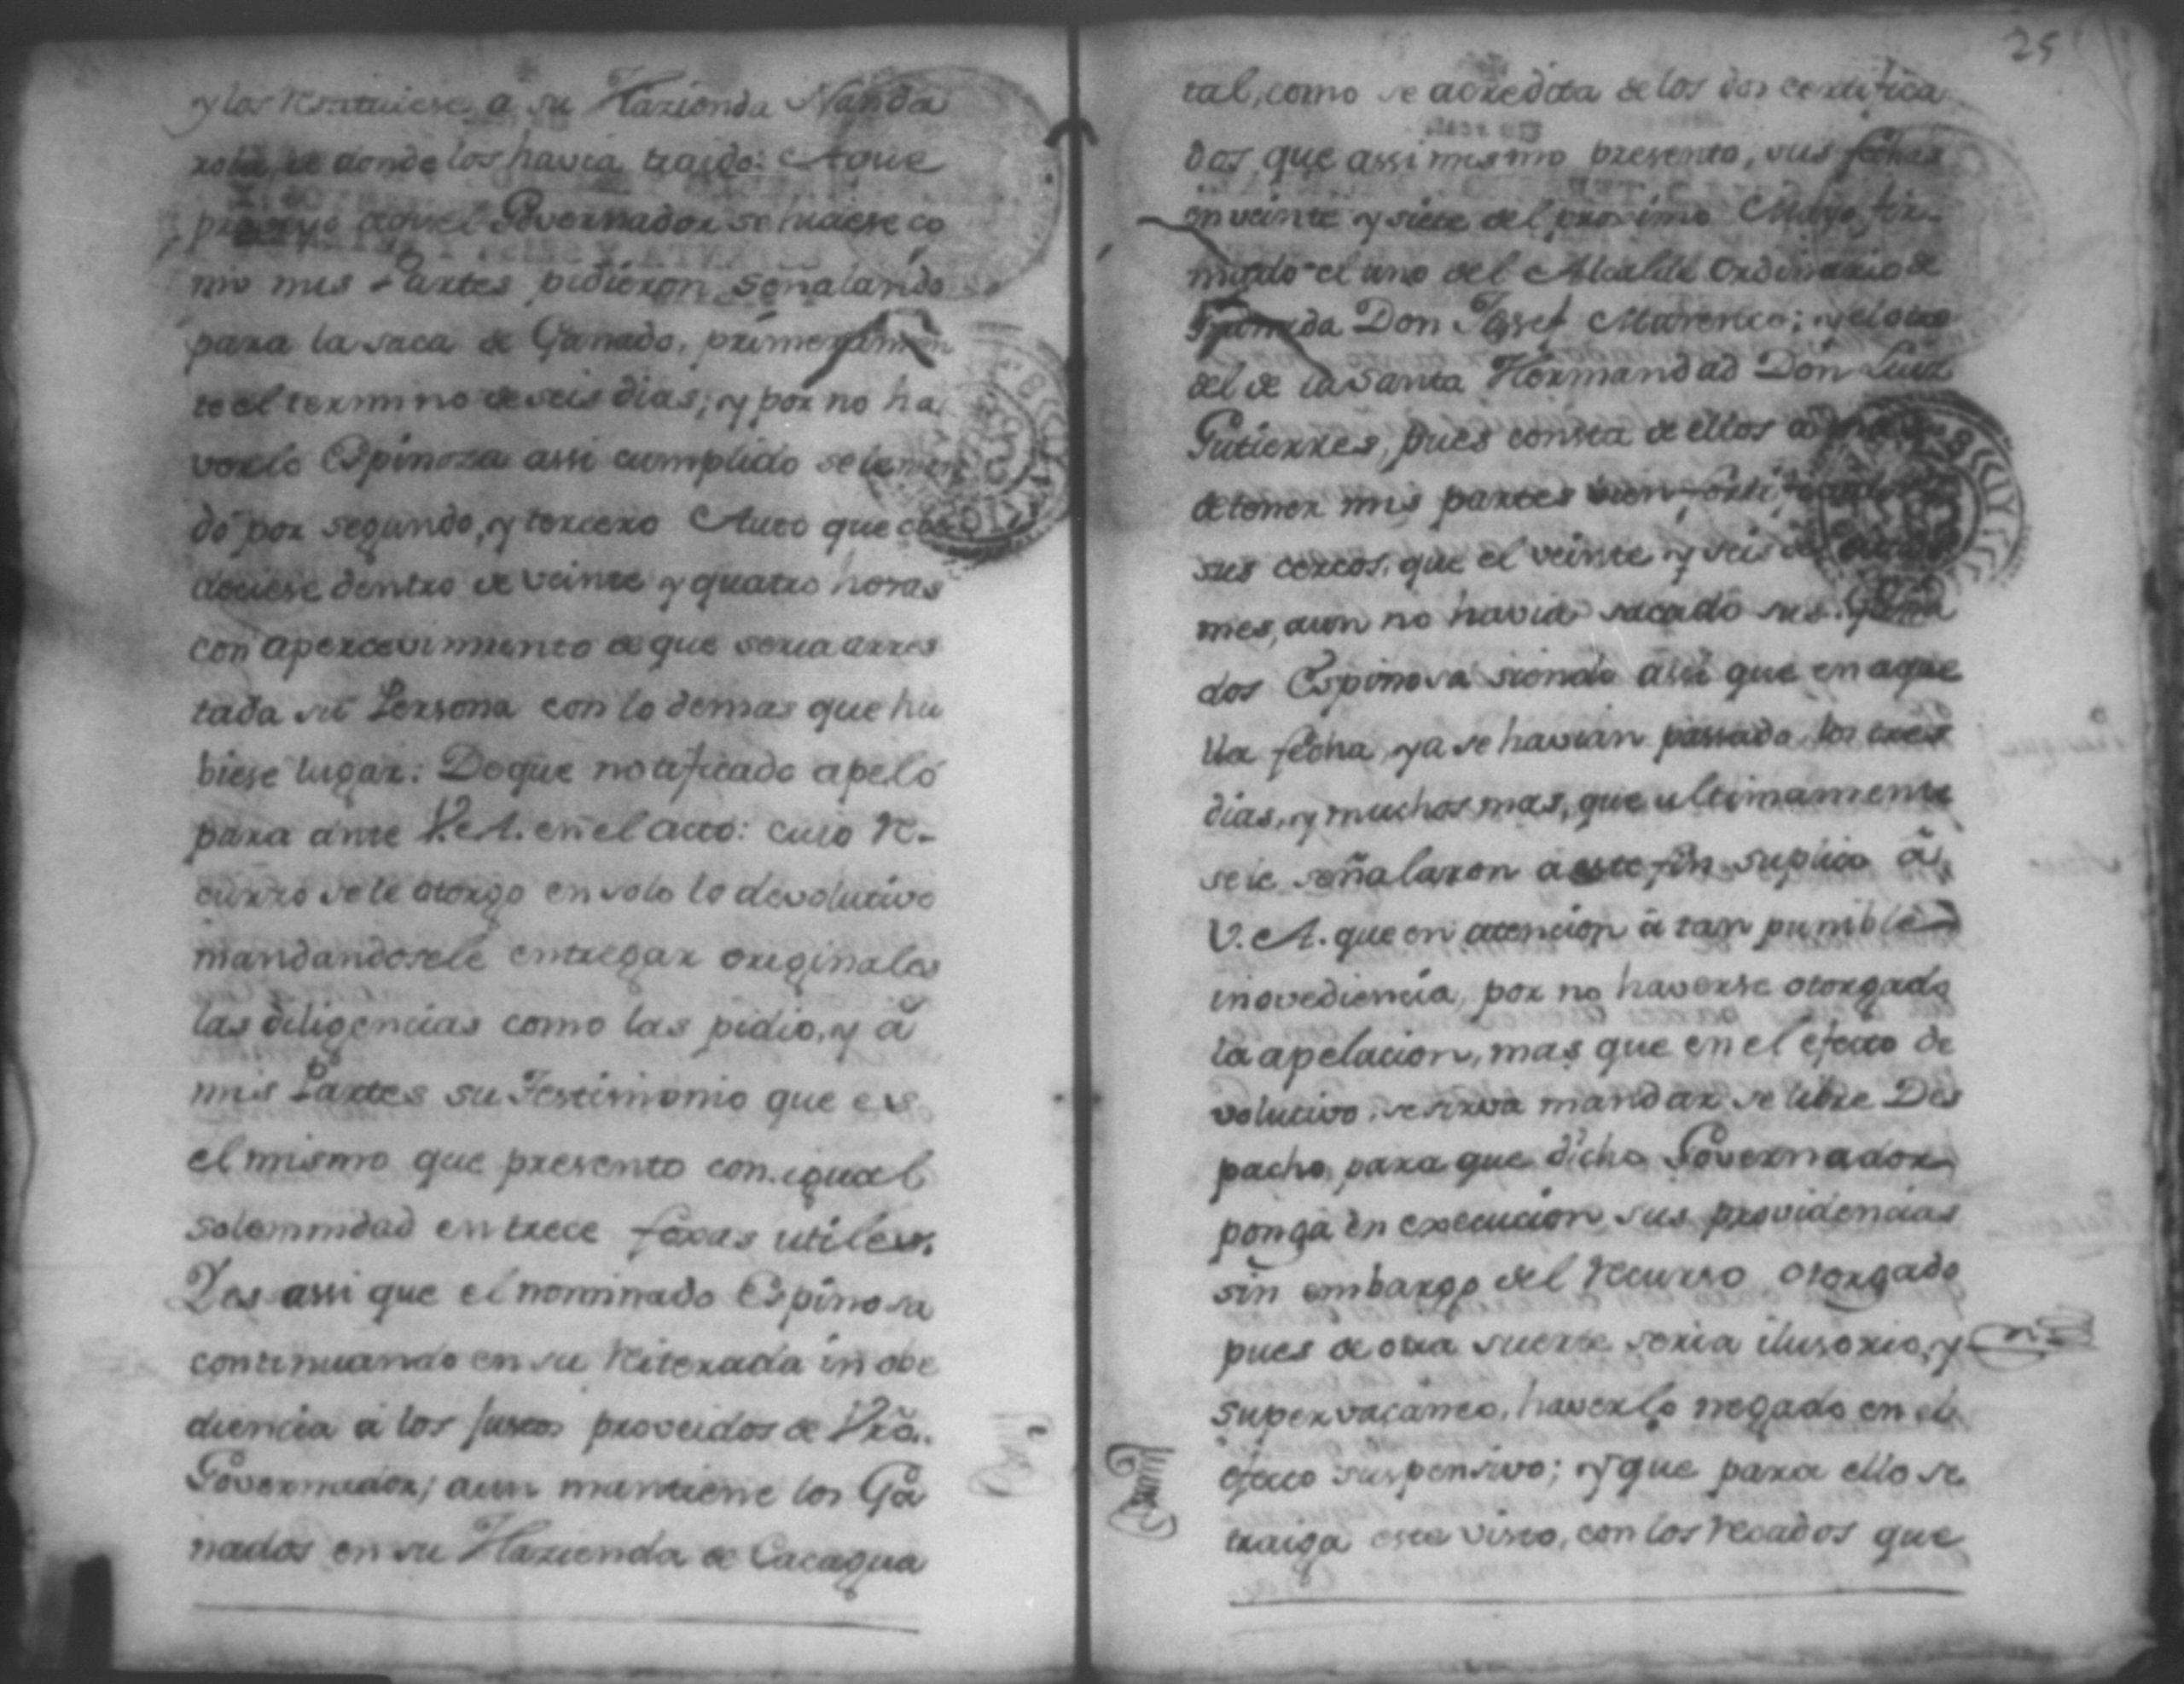 y los restituiese à su Hazienda Nanda
rola, de donde los havia traido: Aque
proveyo aquel Governador se huiese co
mo mis Partes pidieron, señalando
para la saca de Ganado, primeramen
te el termino de seis dias; y por no ha
verlo Espinoza assi cumplido se le man
dó por segundo, y tercero Auto que
dociese dentro de veinte y quatro horas
con apercevimiento de que seria arres
tada su Persona con lo demas que hu
biese lugar: Deque notificado apeló
para ante V. A. en el acto: cuio re-
curzo se le otorgo en solo lo devolutivo
mandandosele entregar originales
las diligencias como las pidio, y â
mis Partes su Testimonio que es
el mismo que presento con igual
solemnidad en trece foxas utiles.
Y es assi que el nominado Espinosa
continuando en su reiterada inobe
diencia á los justos proveidos de Vrõ.
Governador; aun mantiene los Ga
nados en su Hazienda de Cacagua
25
tal, como se acredita de los dos certifica
dos, que assi mesmo presento, sus fechas
en veinte y siete del proximo Mayo, fir-
mado el uno del Alcalde Ordinario de
Granada Don Josef Marenco; y el otro
del de la Santa Hermandad Don Luis
Gutierres, pues consta de ellos a
de tener mis partes bien
sus cercos, que el veinte y seis de
mes, aun no havia sacado sus Gana
dos Espinosa siendo assi que en aque
lla fecha, ya se havian passado los tres
dias, y muchos mas, que ultimamente
se le señalaron a este fin suplico â
V. A. que en atencion à tan punible
inovediencia, por no haverse otorgado
la apelacion, mas que en el efecto de
volutivo, se sirva mandar se libre Des
pacho, para que dicho Governador
ponga en execucion sus providencias
sin embargo del recurso otorgado
pues de otra suerte seria ilusorio, y
supervacaneo, haverlo negado en el
efecto suspensivo; y que para ello se
traiga este visto, con los recados que